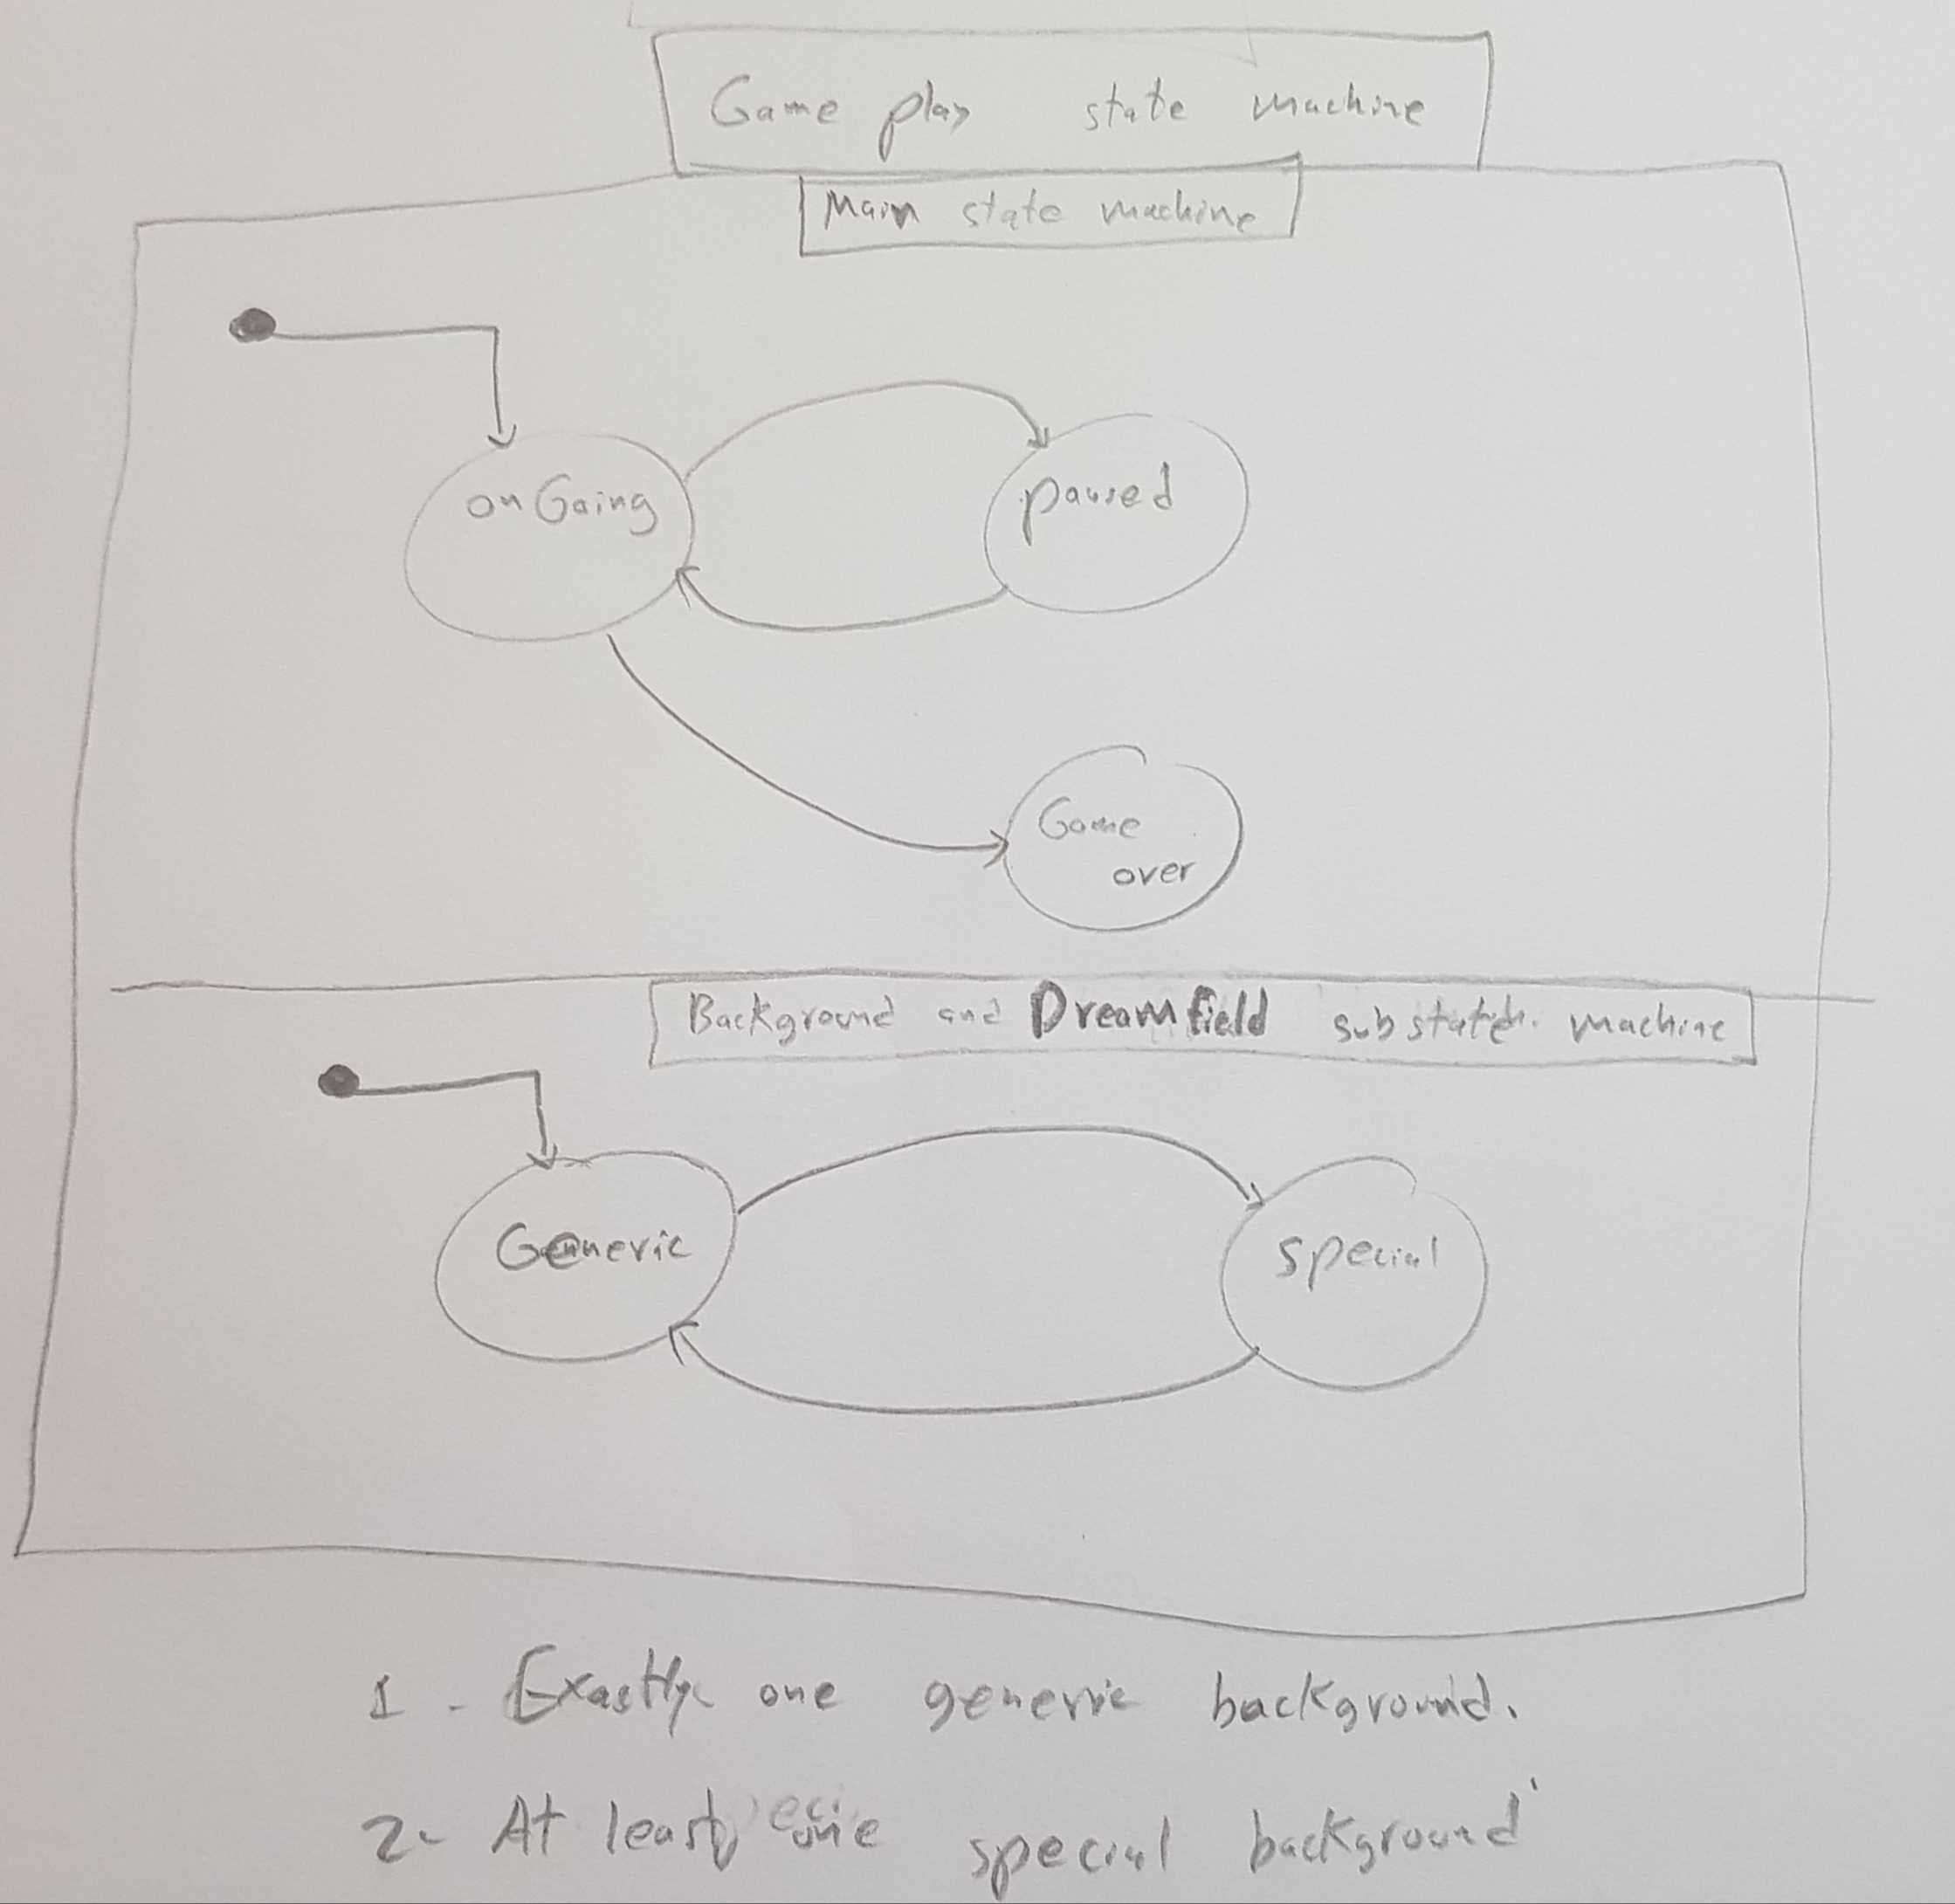 Game play state machine
Main state machine
onGoing
paused
Game
over
Background and Dreamfield substate machine
Generic
special
1 - Exactly one generic background.
2- At least one special background